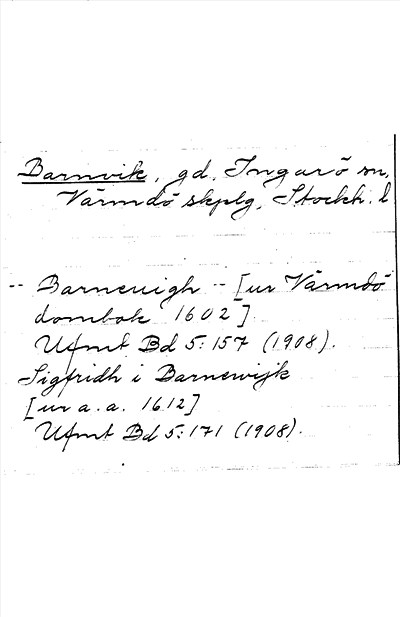 Barnvik, gd, Ingarö sn,
Värmdö skplg, Stockh. l
-- Barneuigh -- [ur Värmdö
dombok 1602].
Ufmt Bd 5:157 (1908).
Sigfridh i Barnewijk
[ur a.a. 1612]
Ufmt Bd 5:171 (1908).